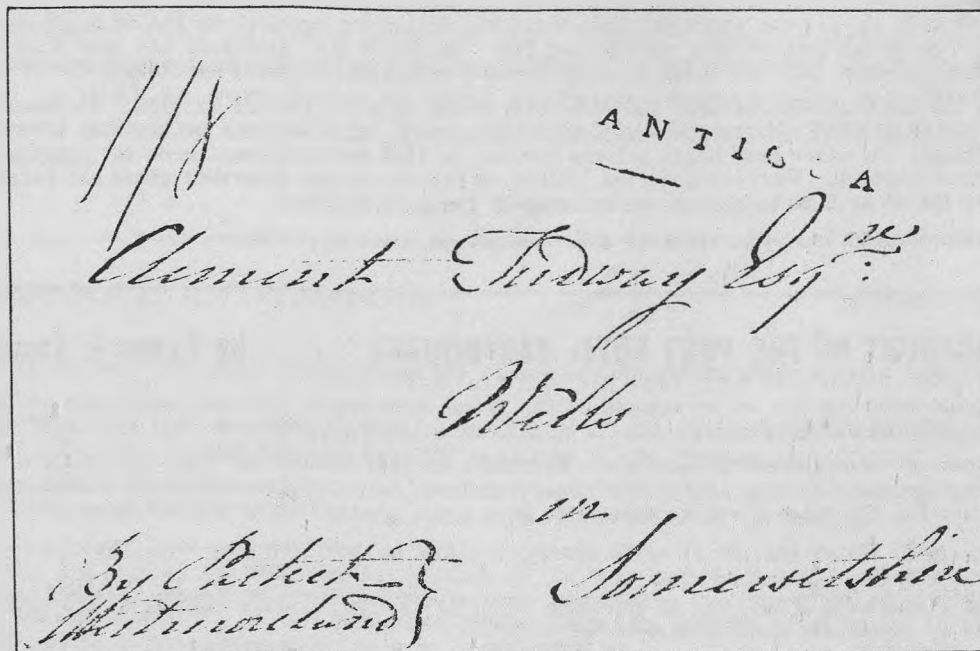 ANTIGUA
Clement Tudway Esq.re
Wells
in
Somersetshire
By Packet
Westmoreland